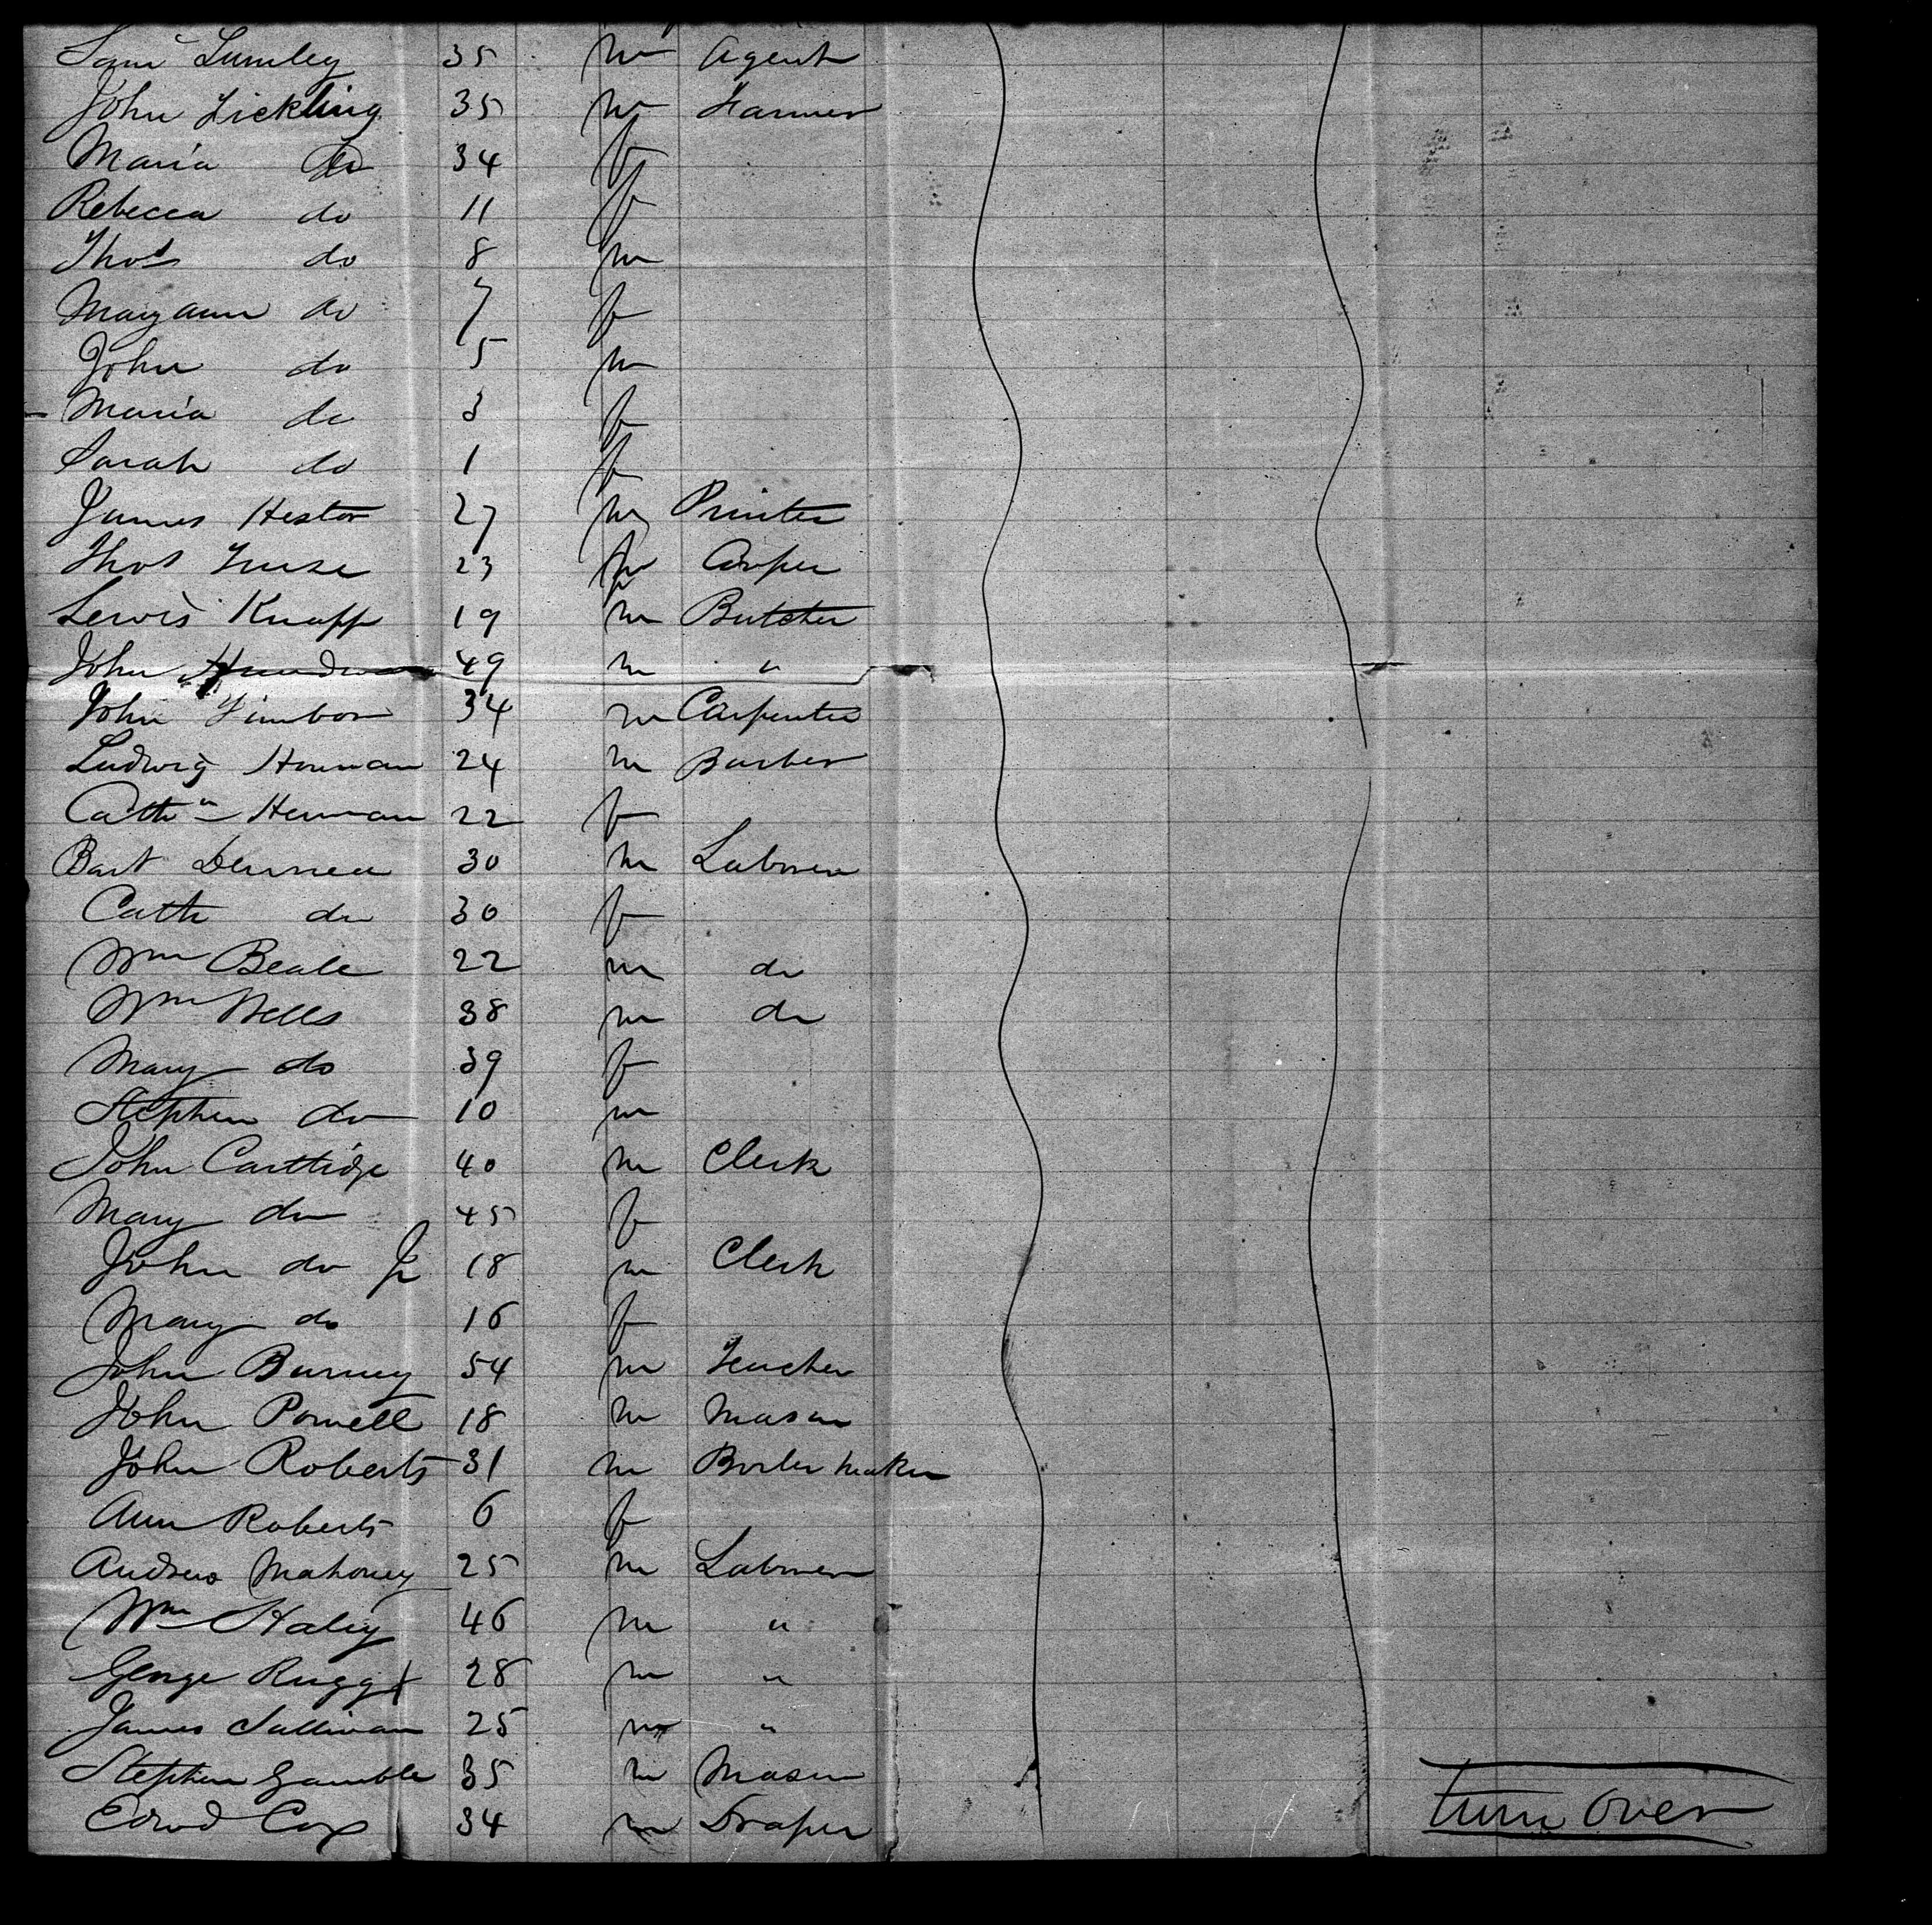 Saml Lumley 35 m Agent
John Lickling 35 m Farmer
Maria do 34 f
Rebecca do 11 f
Thos do 8 m
Maryann do 7 f
John do 5 m
Maria do 3 f
Sarah do 1 f
James Hestor 27 m Printer
Thos 23 m Cooper
Lewis Knapp 19 m Butcher
John 49 m "
John Timbor 34 m Carpenter
Ludwig Herman 24 m Barber
Cathn Herman 22 f
Bart 30 m Labourer
Cath do 30 f
Wm Beale 22 m do
Wm Wells 38 m do
Mary do 39 f
Stephen do 10 m
John Carttidge 40 m Clerk
Mary do 45 f
John do Jr 18 m Clerk
Mary do 16 f
John Burney 54 m Teacher
John Powell 18 m Mason
John Roberts 31 m Boiler maker
Ann Roberts 6 f
Andrew Mahoney 25 m Labourer
Wm Haley 46 m "
George Rugg 28 m "
James Sullivan 25 m "
Stephen Gamble 35 m Mason
Edwd Cox 34 m Draper
turn over